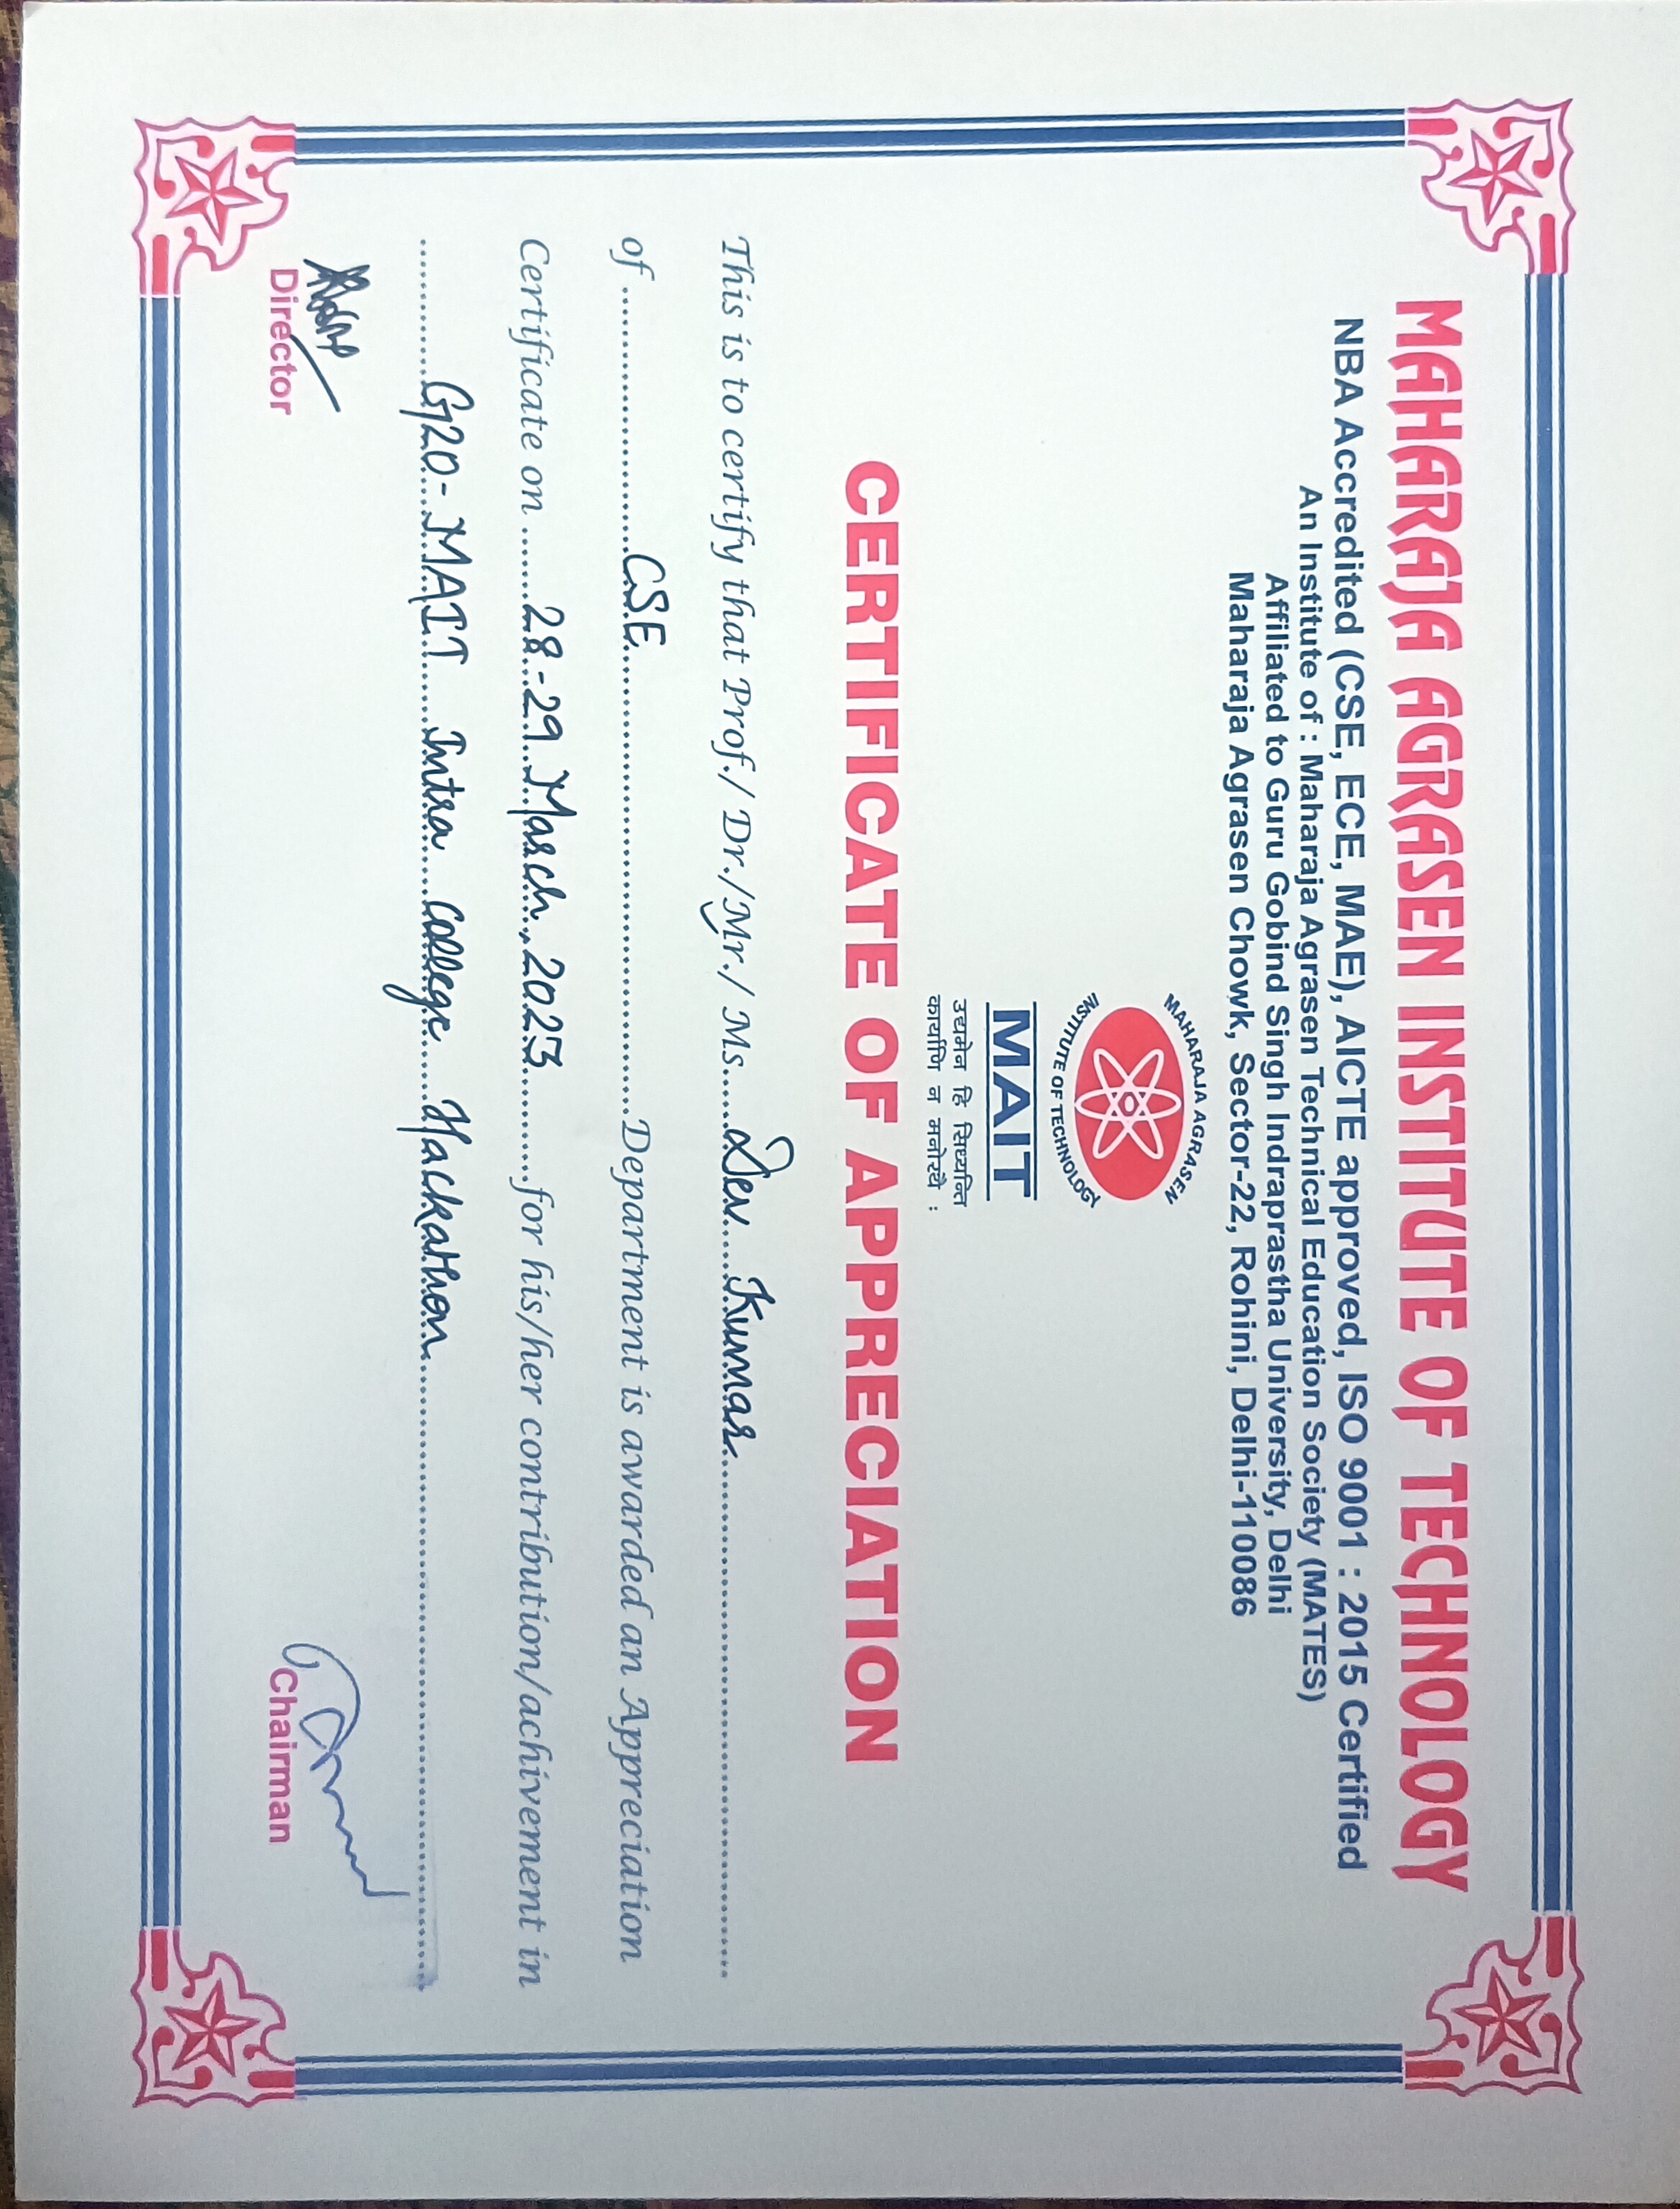 MAHARAJA AGRASEN INSTITUTE OF TECHNOLOGY
NBA Accredited (CSE, ECE, MAE), AICTE approved, ISO 9001 : 2015 Certified
An Institute of : Maharaja Agrasen Technical Education Society (MATES)
Affiliated to Guru Gobind Singh Indraprastha University, Delhi
Maharaja Agrasen Chowk, Sector-22, Rohini, Delhi-110086
MAHARAJA AGRASEN
INSTITUTE OF TECHNOLOGY
MAIT
उद्यमेन हि सिध्यन्ति
कार्याणि न मनोरथै :
CERTIFICATE OF APPRECIATION
This is to certify that Prof./ Dr./Mr./ Ms......Dev Kumar
of ........CSE........Department is awarded an Appreciation
Certificate on .......28-29 March, 2023..........for his/her contribution/achivement in
G20-MAIT Intra College Hackathon
Director
Chairman